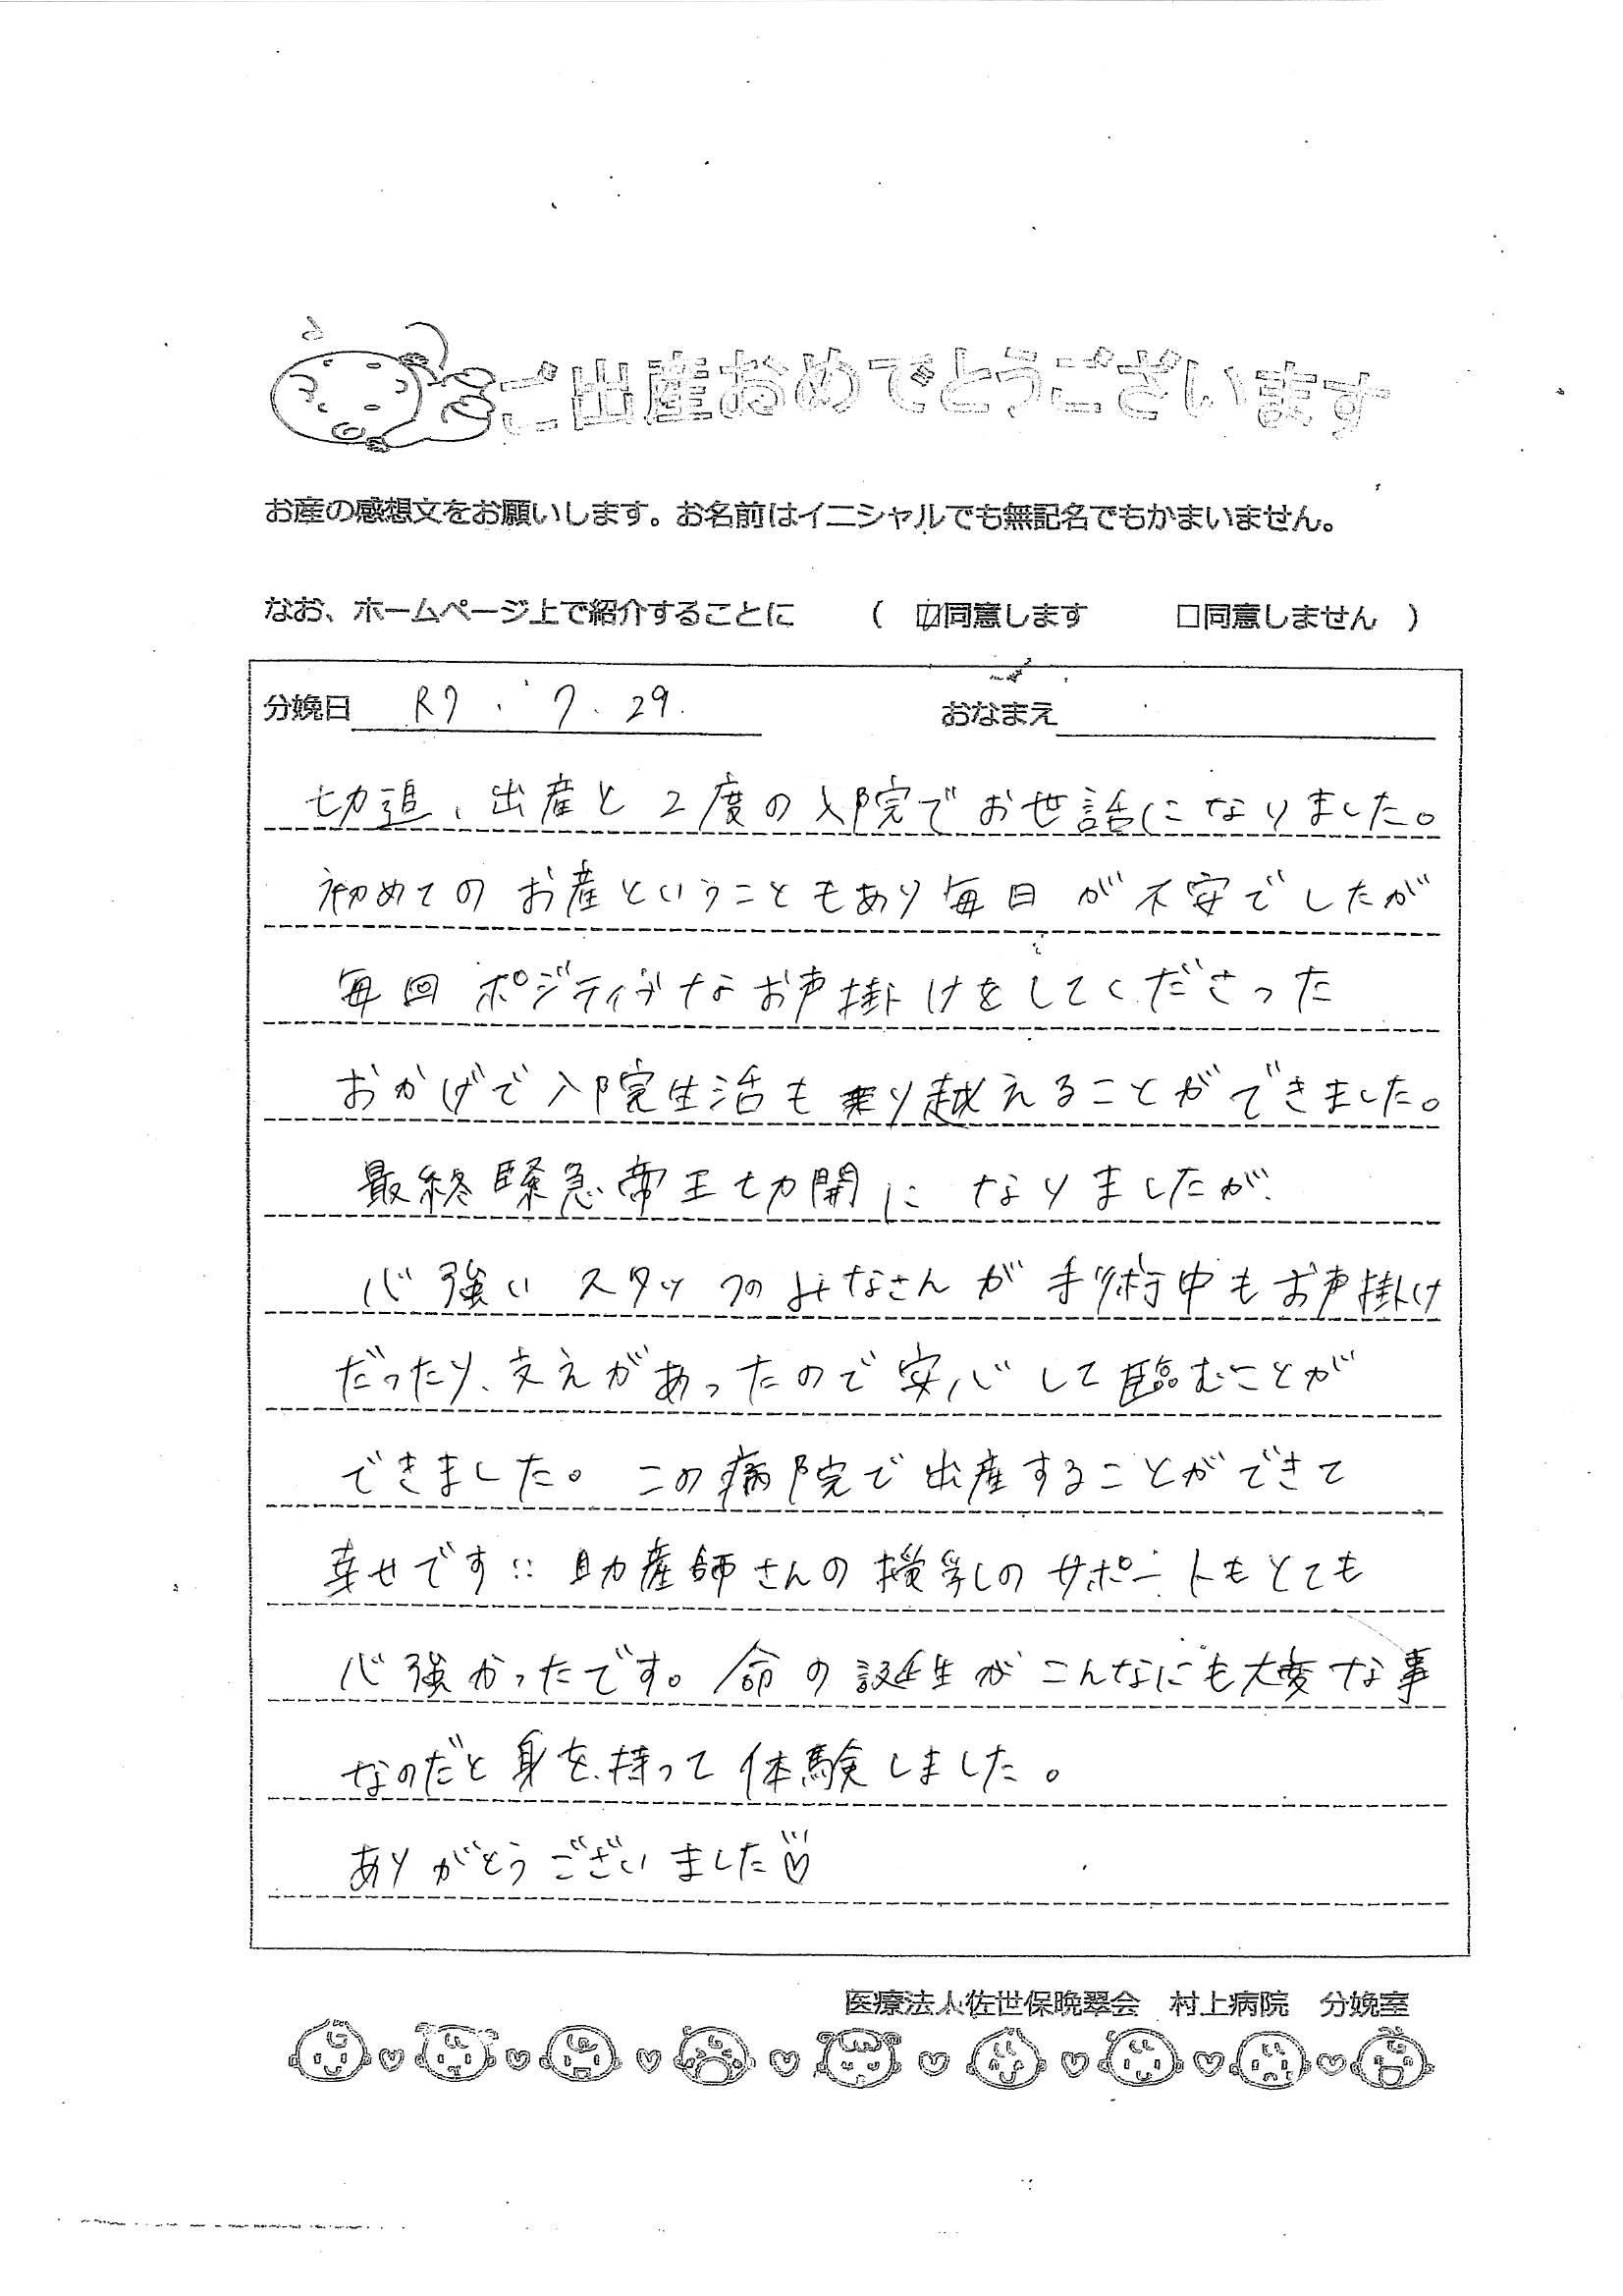 ご出産おめでとうございます
お産の感想文をお願いします。お名前はイニシャルでも無記名でもかまいません。
なお、ホームページ上で紹介することに ( ☑同意します □同意しません )
分娩日 R7. 7. 29. おなまえ
切迫、出産と2度の入院でお世話になりました。
初めてのお産ということもあり毎日が不安でしたが
毎回ポジティブなお声掛けをしてくださった
おかげで入院生活も乗り越えることができました。
最終緊急帝王切開になりましたが、
心強いスタッフのみなさんが手術中もお声掛け
だったり、支えがあったので安心して臨むことが
できました。この病院で出産することができて
幸せです!! 助産師さんの授乳のサポートもとても
心強かったです。命の誕生がこんなにも大変な事
なのだと身を持って体験しました。
ありがとうございました♡
医療法人佐世保晩翠会 村上病院 分娩室